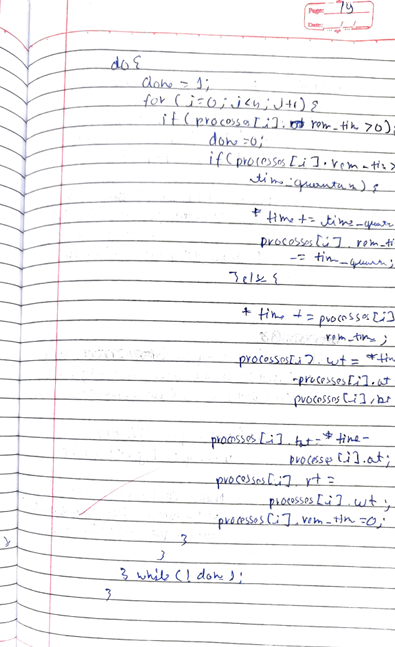 Page: 74
Date: / /
do {
done = 1;
for (i=0; i<n; i++) {
if (processes[i]. rem_tim >0);
done =0;
if (processes[i]. rem_tim >
time-quantum) {
* time += time_quan
processes[i]. rem_ti
-= tim_quan;
} else {
* time += processes[i]
rem_tim;
processes[i]. wt = *tim
-processes[i].at
processes[i].bt
processes[i]. tat = * time -
processes[i].at;
processes[i]. rt =
processes[i]. wt;
processes[i]. rem_tim =0;
}
}
} while (! done);
}